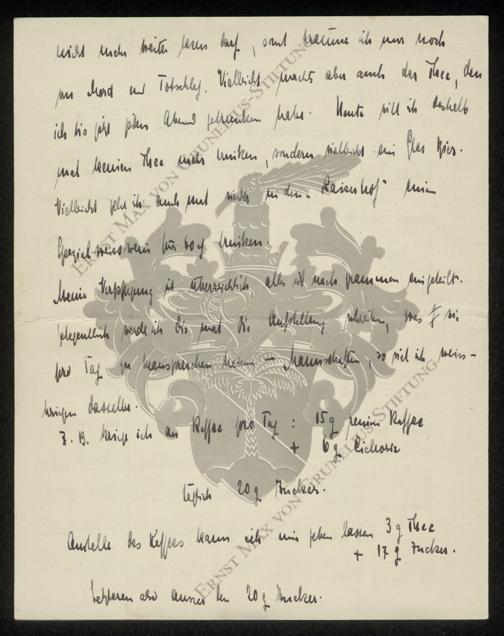 nicht mehr weiter lesen darf, sonst träume ich nur noch
von Mord und Totschlag. Vielleicht macht's aber auch der Thee, den
ich bis jetzt jeden Abend getrunken habe. Heute will ich deshalb
mal keinen Thee mehr trinken, sondern vielleicht ein Glas Bier.
Vielleicht gehe ich auch mal wieder in den "Kaiserhof" einen
für trinken.
Meine Verpflegung ist alles ist nach Grammen eingeteilt.
Gelegentlich werde ich Dir mal die Aufstellung schicken, was
pro Tag zu beanspruchen haben – Mannschaften, so viel ich weiss –
kriegen dasselbe.
Z. B. kriege ich an Kaffee pro Tag : 15 g reinen Kaffee
+ 6 g Cichorie
täglich 20 g Zucker.
Anstelle des Kaffees kann ich mir geben lassen 3 g Thee
+ 17 g Zucker.
Letzteren also ausser den 20 g Zucker.
ERNST MAX VON GRUNELIUS-STIFTUNG
ERNST MAX VON GRUNELIUS-STIFTUNG